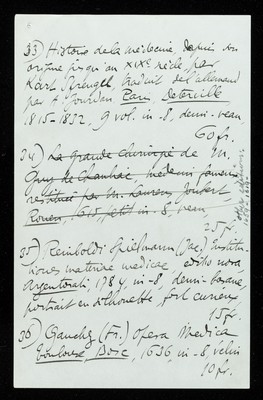 33) Histoire de la médecine, Depuis son
origine jusqu'au XIXe siècle, par
Kurt Sprengel, traduit de l'allemand
par A. Jourdan Paris, Deterville
1815-1832, 9 vol. in-8, demi-veau
60 fr.
34) La Grande Chirurgie de M.
Guy de Chauliac, médecin fameux
restituée par M. Laurens Joubert
Rouen, 1615, petit in-8, veau,
25 fr.
35) Reinboldi Spielmann (Jac.) Institu-
tiones materiae medicae editio nova,
Argentorati, 1784, in-8, demi-basane,
portrait en silhouette, fort curieux,
15 fr.
36) Gauchez (Fr.) Opera Medica
Toulouse, Bosc, 1636, in-8, vélin
10 fr.